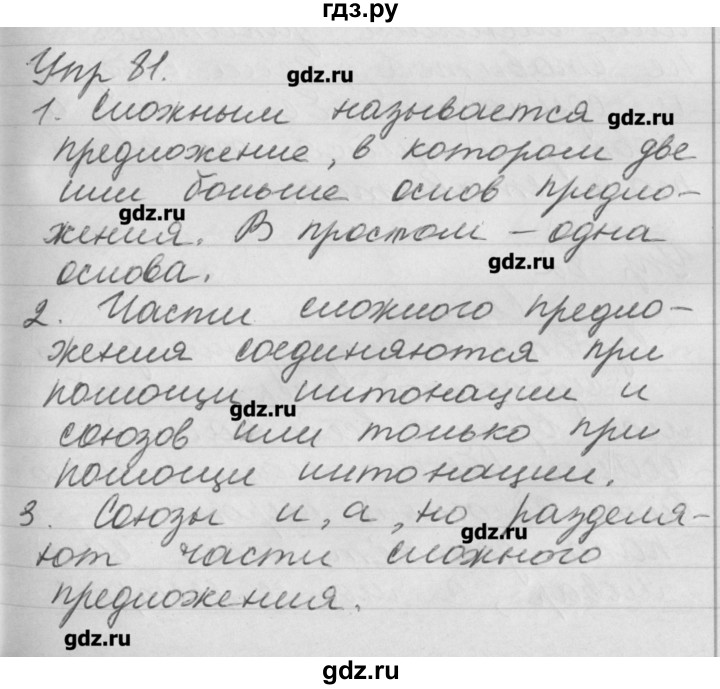 гдз.ру
Упр 81.
gdz.ru
1. Сложным называется
gdz.ru
предложение, в котором две
или больше основ предло-
gdz.ru
жения. В простом – одна
gdz.ru
основа.
2. Части сложного предло-
жения соединяются при
помощи интонации и
gdz.ru
союзов или только при
помощи интонации.
3. Союзы и, а, но разделя-
gdz.ru
ют части сложного
предложения.
gdz.ru
gdz.ru